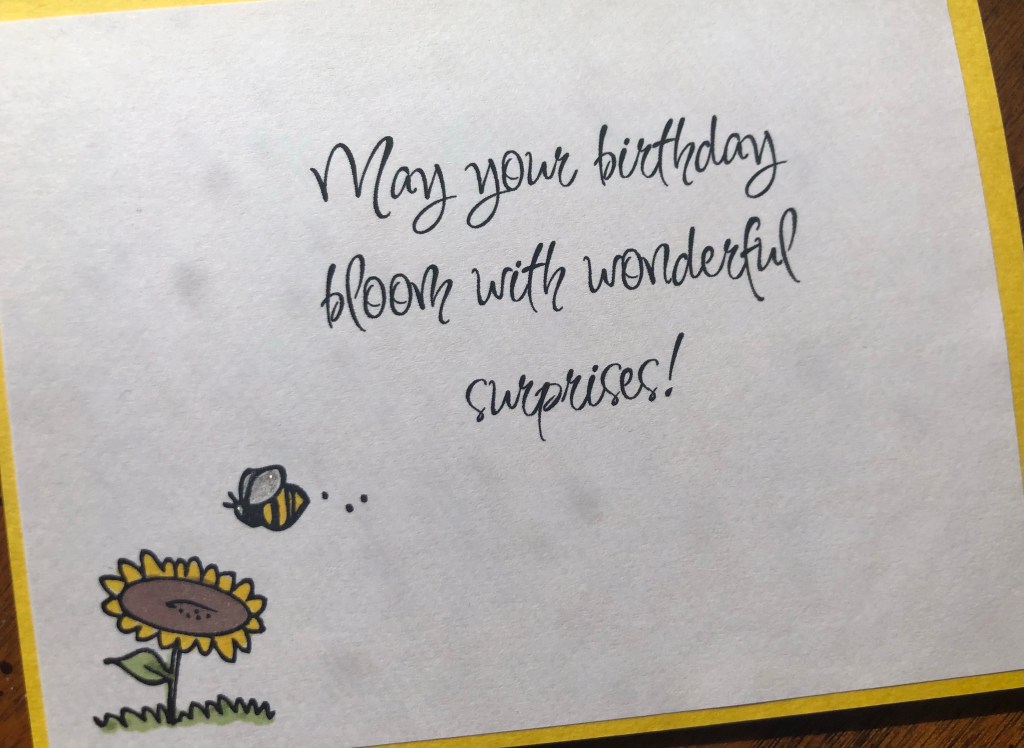 May your birthday
bloom with wonderful
surprises!